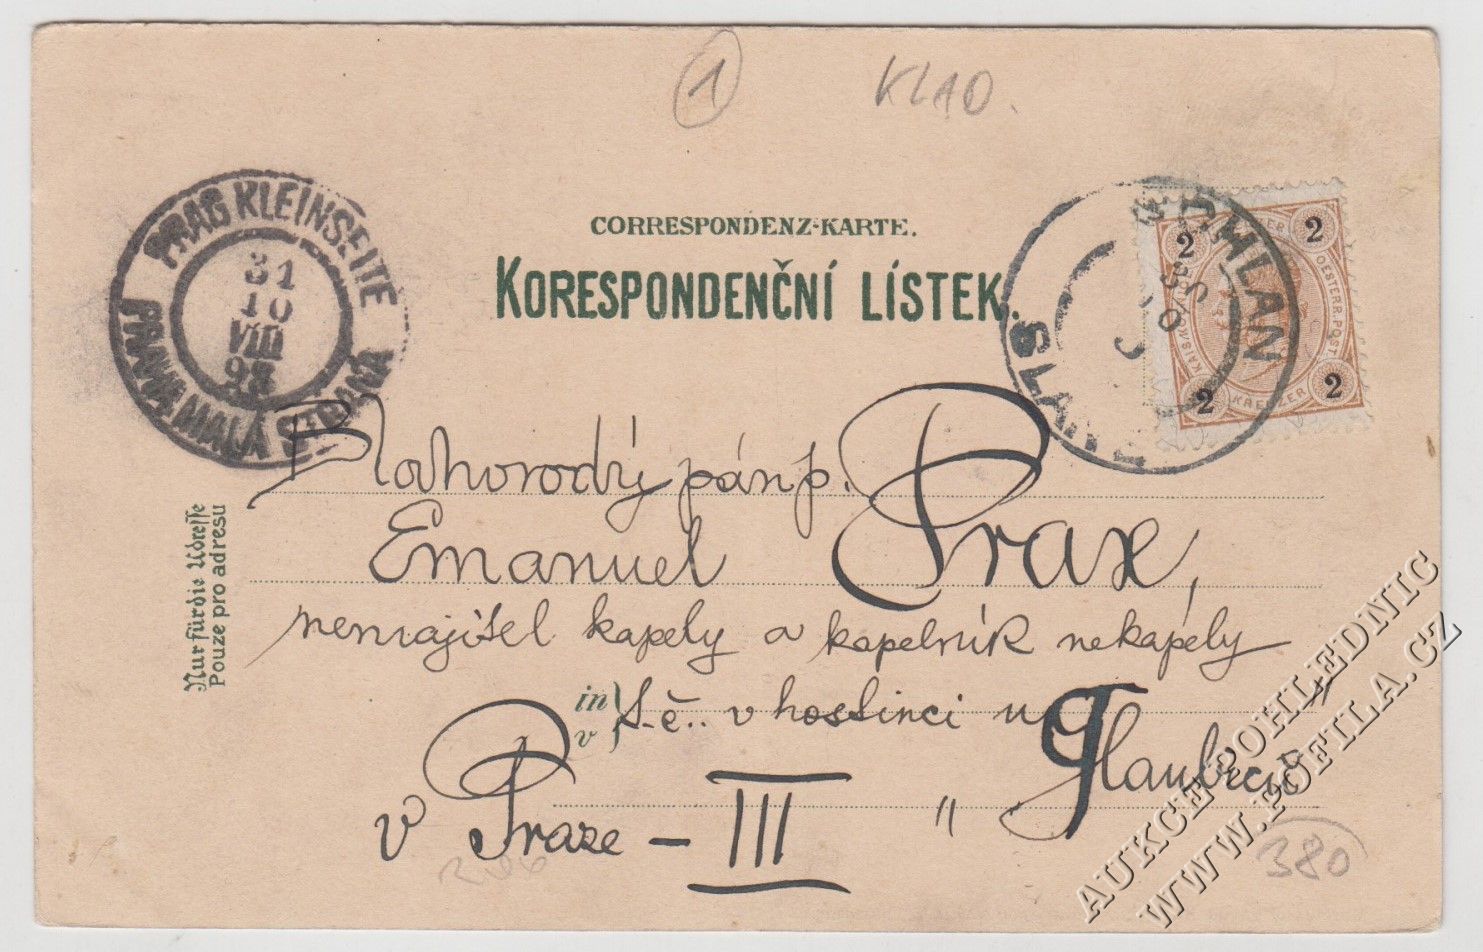 1
KLAD.
CORRESPONDENZ-KARTE.
KORESPONDENČNÍ LÍSTEK.
PRAG KLEINSEITE
31
10
VIII
98
PRAHA MALÁ STRANA
SCHLAN
SLANÝ
2 2
2 2
KAIS. KÖN. OESTERR. POST.
KREUZER
Blahorodý pán p.
Emanuel Prax,
nemajitel kapely a kapelník nekapely
in
v
t.č. v hostinci u
„Glaubiců"
v Praze – III
Nur für die Adresse
Pouze pro adresu
380
AUKCE POHLEDNIC
WWW.POFILA.CZ